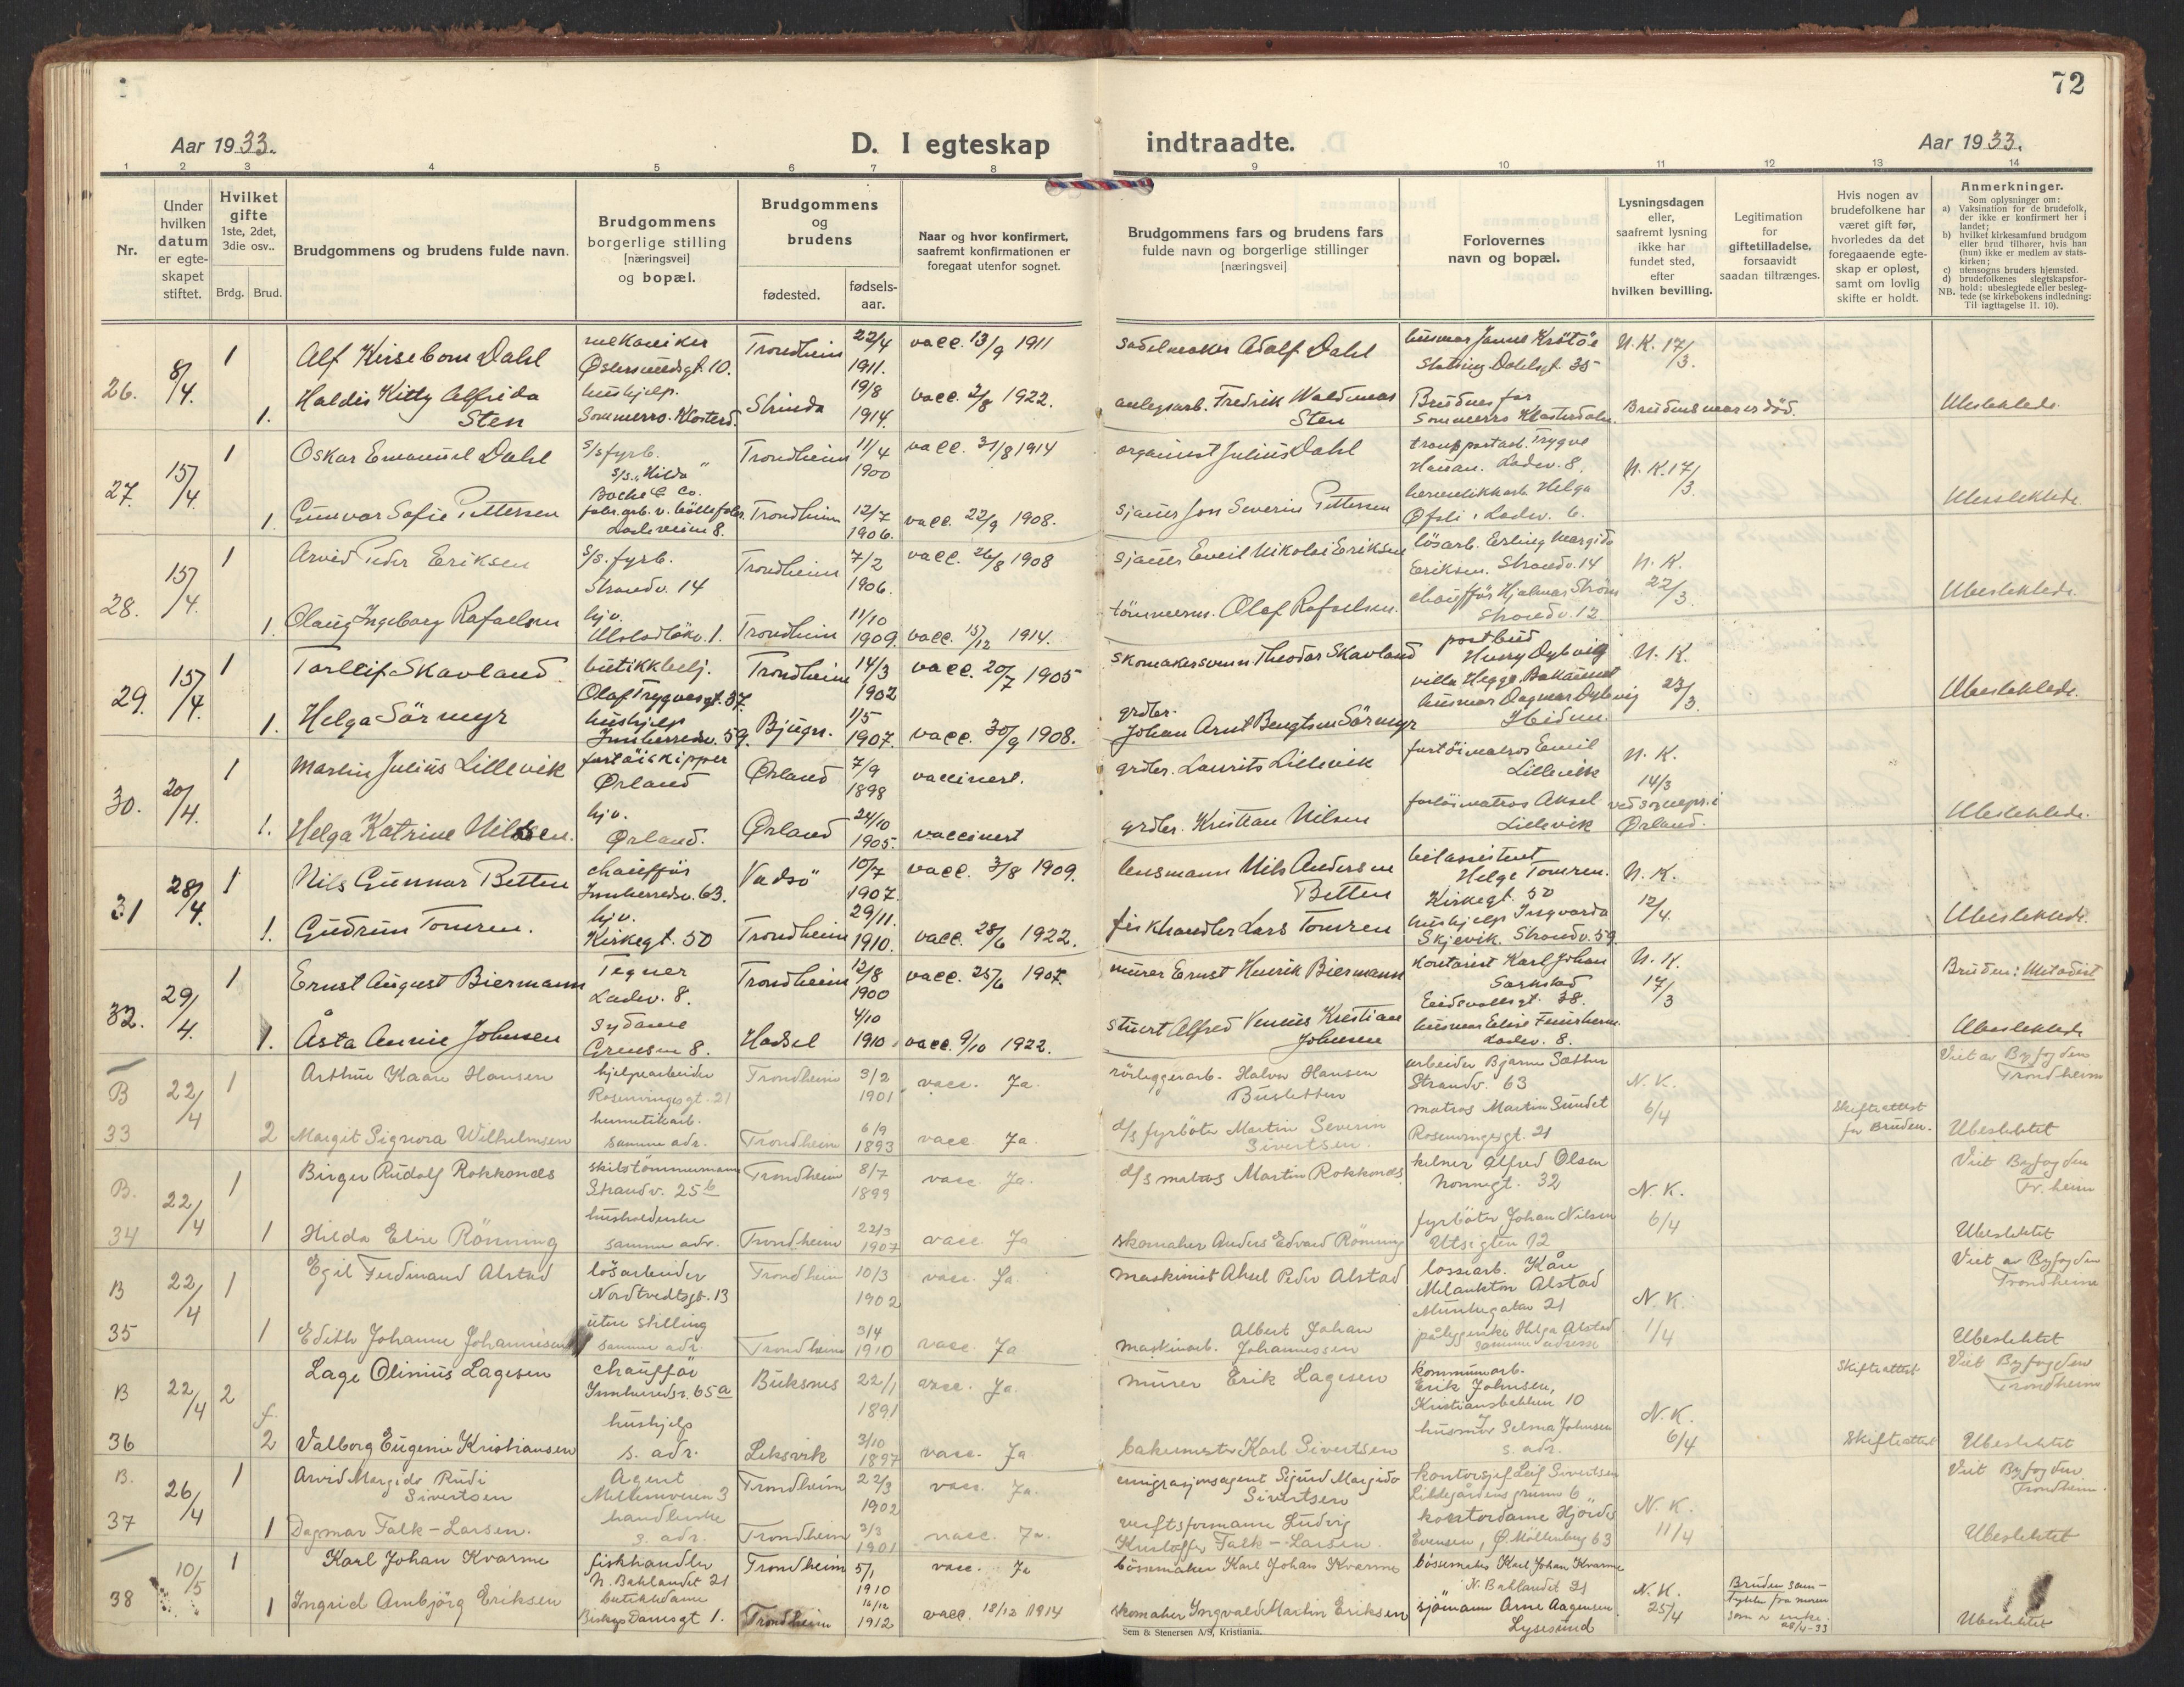 72
Aar 1933.
D. I egteskap indtraadte.
Aar 1933.
1 2 3 4 5 6 7 8 9 10 11 12 13 14
Nr.
Under hvilken datum er egteskapet stiftet.
Hvilket gifte 1ste, 2det, 3die osv..
Brdg. Brud.
Brudgommens og brudens fulde navn.
Brudgommens borgerlige stilling [næringsvei] og bopæl.
Brudgommens og brudens
fødested.
fødselsaar.
Naar og hvor konfirmert, saafremt konfirmationen er foregaat utenfor sognet.
Brudgommens fars og brudens fars fulde navn og borgerlige stillinger [næringsvei]
Forlovernes navn og bopæl.
Lysningsdagen eller, saafremt lysning ikke har fundet sted, efter hvilken bevilling.
Legitimation for giftetilladelse, forsaavidt saadan tiltrænges.
Hvis nogen av brudefolkene har været gift før, hvorledes da det foregaaende egteskap er opløst, samt om lovlig skifte er holdt.
Anmerkninger.
Som oplysninger om:
a) Vaksination for de brudefolk, der ikke er konfirmert her i landet;
b) hvilket kirkesamfund brudgom eller brud tilhører, hvis han (hun) ikke er medlem av statskirken;
c) utensogns bruders hjemsted.
d) brudefolkenes slegtskapsforhold: ubeslegtede eller beslegtede (se kirkebokens indledning: Til iagttagelse II. 10).
NB.
26. 8/4. 1 Alf Kirsebom Dahl mekaniker Østersundsgt. 10. Trondheim 22/4 1911. vacc. 13/9 1911 sadelmaker Adolf Dahl husmor Janne Krätöe Dahlsgt. 35 N.K. 17/3.
1. Haldis Kitty Alfrida Sten hushjelp. Sommerro. Klosterd. Strinda 19/8 1914. vacc. 2/8 1922. anlegsarb. Fredrik Waldemar Sten Brudens far Sommerro Klosterdalen. Brudens mor er död. Ubeslektede.
27. 15/4. 1 Oskar Emanuel Dahl s/s fyrb. s/s. "Hilda" Bache & Co. Trondheim 11/4 1900 vacc. 31/8 1914 organist Julius Dahl transportarb. Trygve Hanan. Ladev. 8. N.K. 17/3.
1. Gunvor Sofie Pettersen fabr. arb. v. Ladeveien 8. Trondheim 12/7 1906. vacc. 22/9 1908. sjauer Jon Severin Pettersen hermetikkarb. Helga Øfsti. Ladev. 6. Ubeslektede.
28. 15/4. 1 Arvid Peder Eriksen s/s. fyrb. Strandv. 14 Trondheim 7/2 1906. vacc. 26/8 1908 sjauer Emil Nikolai Eriksen lösarb. Erling Margido Eriksen. Strandv. 14 N.K. 22/3.
1. Olaug Ingeborg Rafaelsen hjv. Trondheim 11/10 1909. vacc. 15/12 1914. tömmerm. Olaf Rafaelsen. chaufför Hjalmar Ström Strandv. 12. Ubeslektede.
29. 15/4. 1 Torleif Skavland. butikkbetj. Olaf Trygvasgt. 37. Trondheim 14/3 1902 vacc. 20/7 1905 skomakersvenn Theodor Skavland postbud Henry Dybvig villa Hegge. Bakaunet N.K. 23/3.
1. Helga Sörmyr hushjelp Innherredsv. 59. Bjugn. 1/5 1907. vacc. 30/9 1908. grdbr. Johan Arnt Bengtsen Sörmyr husmor Dagmar Dybvig Ibidem. Ubeslektede.
30. 20/4. 1 Martin Julius Lillevik fartöiskipper Ørland Ørland 7/9 1898 vaccinert. grdbr. Laurits Lillevik fartöimatros Emil Lillevik N.K. 14/3
1. Helga Katrine Nilssen. hjv. Ørland. Ørland 24/10 1905. vaccinert grdbr. Kristian Nilsen fartöimatros Aksel Lillevik ved sognepr. i Ørland. Ubeslektede.
31 28/4. 1 Nils Gunnar Betten chauffør Innherredsv. 63. Vadsö 10/7 1907. vacc. 3/8 1909. lensmann Nils Andersen Betten bilassistent Helge Tomren. Kirkegt. 50 N.K. 12/4.
1. Gudrun Tomren. hjv. Kirkegt. 50 Trondheim 29/11. 1910. vacc. 28/6 1922. fiskhandler Lars Tomren hushjelp Ingvarda Skjevik. Strandv. 59. Ubeslektede.
32. 29/4. 1 Ernst August Biermann Tegner Ladev. 8. Trondheim 12/8 1900 vacc. 25/6 1907. murer Ernst Henrik Biermann kontorist Karl Johan Sarkstad Eidsvollsgt. 38. N.K. 17/3 Bruden: Metodist
1. Åsta Annie Johnsen sydame Grensen 8. Hadsel 4/10 1910. vacc. 9/10 1922. stuert Alfred Venius Kristian Johnsen husmor Ladev. 8. Ubeslektede
B 33 22/4 1 Arthur Kaare Hansen hjelpearbeider Rosenvingesgt. 21 Trondheim 3/2 1901 vacc. Ja. rörleggerarb. Halvor Hansen Busletten arbeider Bjarne Sæther Strandv. 63 N.K. 6/4 Viet av Byfogden Trondheim
2 Margit Signora Wilhelmsen hermetikarb. samme adr. Trondheim 6/9 1893 vacc. Ja. d/s fyrböter Martin Severin Sivertsen. matros Martin Sundet Rosenvingesgt. 21 Skifteattest for Bruden. Ubeslektet
B. 34 22/4 1 Birger Rudolf Rokkones skibstömmermann Strandv. 25b Trondheim 8/7 1899 vacc. Ja. d/s matros Martin Rokkones kelner Alfred Olsen Nonnegt. 32 N.K. 6/4 Viet Byfogden Tr.heim
1 Hilda Elise Rönning husholderske samme adr. Trondheim 22/3 1907 vacc. Ja skomaker Anders Edvard Rönning fyrböter Johan Nilsen Utsigten 12 Ubeslektet
B 35 22/4 1 Egil Ferdinand Alstad lösarbeider Nordtvedtsgt. 13 Trondheim 10/3 1902 vacc. Ja. maskinist Aksel Peder Alstad lossearb. Kåre Melankton Alstad Munkegaten 21 N.K. 1/4 Viet av Byfogden Trondheim
1 Edith Johanne Johannesen uten stilling samme adr. Trondheim 3/4 1910 vacc. Ja maskinarb. Albert Johan Johannessen Helga Alstad samme adresse Ubeslektet
B 36 22/4 2 Lage Olinius Lagesen chauffør Innherredsv. 65a Buksnes 22/1 1891 vacc. Ja. murer Erik Lagesen kommunearb. Erik Johnsen, Kristianstensbakken 10 N.K. 6/4 Skifteattest Viet Byfogden Trondheim
f. 2 Valborg Eugenie Kristiansen hushjelp s. adr. Leksvik 3/10 1897 vacc. Ja bakermester Karl Sivertsen husmor Selma Johnsen s. adr. Skifteattest Ubeslektet
B. 37 26/4 1 Arvid Margido Rudi Sivertsen Agent Mellemveien 3 Trondheim 22/3 1902 vacc. Ja. emigrasjonsagent Sigurd Margido Sivertsen kontorsjef Leif Sivertsen Lillegårdens grunn 6 N.K. 11/4 Viet Byfogden Trondheim.
1 Dagmar Falk-Larsen. handlerske s. adr. Trondheim 3/3 1901 vacc. Ja. verftsformann Ludvig Kristoffer Falk-Larsen. kontordame Hjördis Evensen, Ø. Möllenberg 63 Ubeslektet
38 10/5 1 Karl Johan Kvarme fiskhandler N. Baklandet 21 Trondheim 5/1 1910 vacc. Ja bössemaker Karl Johan Kvarme bössemaker Karl Johan Kvarme N. Baklandet 21 N.K. 25/4 Bruden samtykke fra moren som er enke. 28/4-33
1 Ingrid Arnbjörg Eriksen butikkdame Biskop Daresgt 1. Trondheim 16/12 1912 vacc. 18/12 1914 skomaker Yngvald Martin Eriksen sjömann Arne Aagensen. Lysesund Ubeslektet
Sem & Stenersen A/S, Kristiania.